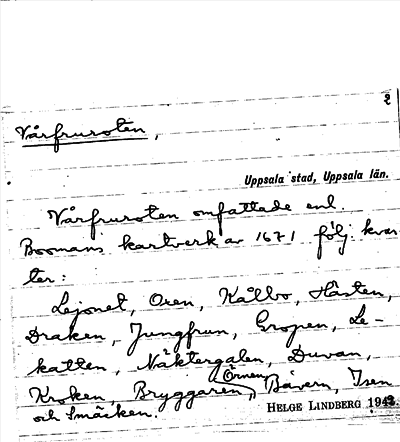 2
Vårfruroten,
Uppsala stad, Uppsala län.
Vårfruroten omfattade enl.
Boomans kartverk av 1671 följ. kvar-
ter:
Lejonet, Oxen, Kålbo, Hästen,
Draken, Jungfrun, Gropen, Le-
katten, Näktergalen, Duvan,
Kroken, Bryggaren, Örnen, Bävern, Isen
och Smäcken.
HELGE LINDBERG 1943.